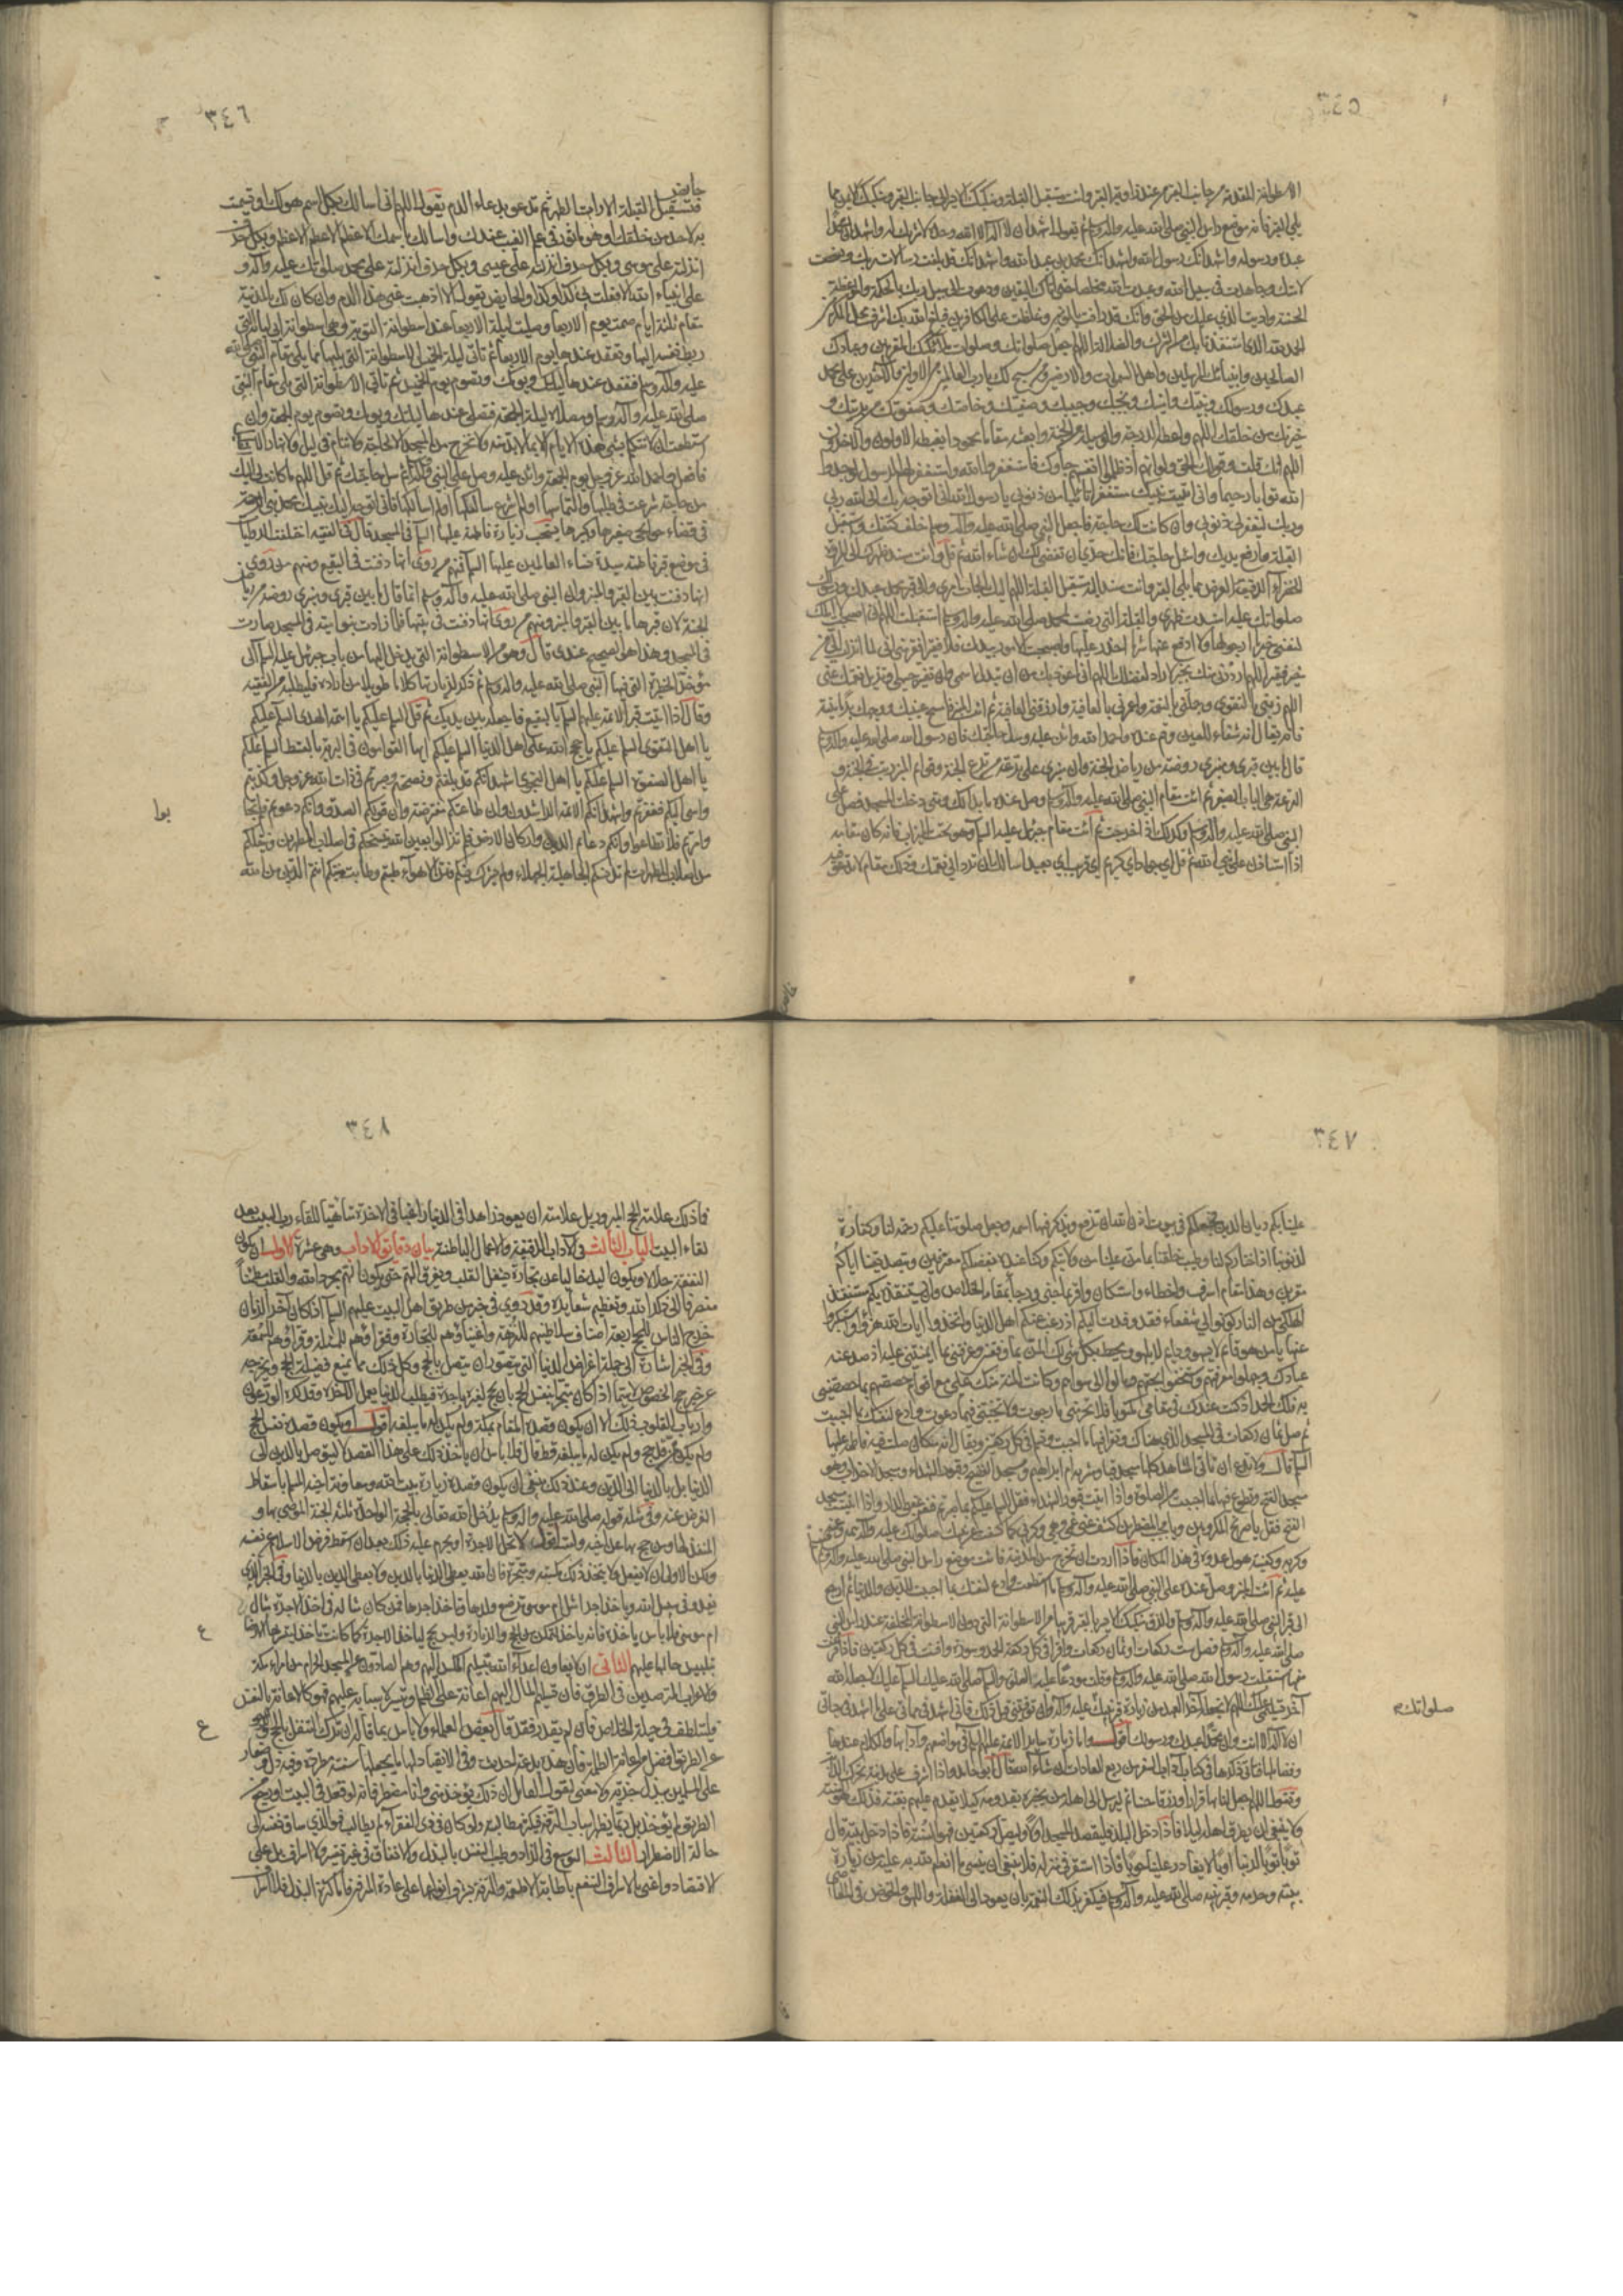 ٣٤٥
الاسطوانة المقدمة من جانب القبر عند زاوية القبر وانت مستقبل القبلة ومنكبك الايسر الى جانب القبر ومنكبك الايمن مما
يلي المنبر فانه موضع راس النبي صلى الله عليه وآله وسلم ثم تقول اشهد ان لا اله الا الله وحده لا شريك له واشهد ان محمدا
عبده ورسوله واشهد انك رسول الله واشهد انك محمد بن عبد الله واشهد انك قد بلغت رسالات ربك ونصحت
لامتك وجاهدت في سبيل الله وعبدت الله مخلصا حتى اتاك اليقين ودعوت الى سبيل ربك بالحكمة والموعظة
الحسنة واديت الذي عليك من الحق وانك قد رؤفت بالمؤمنين وغلظت على الكافرين فبلغ الله بك اشرف محل المكرمين
الحمد لله الذي استنقذنا بك من الشرك والضلالة اللهم اجعل صلواتك وصلوات ملائكتك المقربين وعبادك
الصالحين وانبيائك المرسلين واهل السموات والارضين ومن سبح لك يا رب العالمين من الاولين والآخرين على محمد
عبدك ورسولك ونبيك وامينك ونجيك وحبيبك وصفيك وخاصتك وصفوتك من بريتك و
خيرتك من خلقك اللهم واعطه الدرجة والوسيلة من الجنة وابعثه مقاما محمودا يغبطه الاولون والآخرون
اللهم انك قلت وقولك الحق ولو انهم اذ ظلموا انفسهم جاؤك فاستغفروا الله واستغفر لهم الرسول لوجدوا
الله توابا رحيما واني اتيت نبيك مستغفرا تائبا من ذنوبي يا رسول الله اني اتوجه بك الى الله ربي
وربك ليغفر لي ذنوبي وان كانت لك حاجة فاجعل النبي صلى الله عليه وآله وسلم خلف كتفك واستقبل
القبلة وارفع يديك واسئل حاجتك فانك حري ان تقضى لك ان شاء الله ثم قل وانت مسند ظهرك الى المروة
الخضراء الدقيقة العرض مما يلي القبر وانت مسند اليه مستقبل القبلة اللهم اليك الجأت امري والى قبر محمد عبدك ورسولك
صلواتك عليه اسندت ظهري والقبلة التي رضيت لمحمد صلى الله عليه وآله وسلم استقبلت اللهم اني اصبحت لا املك
لنفسي خير ما ارجو لها ولا ادفع عنها شر ما احذر عليها واصبحت الامور بيدك فلا فقير افقر مني اني لما انزلت الي من
خير فقير اللهم ارددني منك بخير لا راد لفضلك اللهم اني اعوذ بك من ان تبدل اسمي وان تغير جسمي وتزيل نعمتك عني
اللهم زيني بالتقوى وجملني بالنعم واعمرني بالعافية وارزقني العافية ثم ائت المنبر فامسح عينيك ووجهك برمانتيه
فانه يقال انه شفاء للعين وقم عنده واحمد الله واثن عليه وسل حاجتك فان رسول الله صلى الله عليه وآله وسلم
قال ما بين قبري ومنبري روضة من رياض الجنة وان منبري على ترعة من ترع الجنة وقوائم المنبر ربت في الجنة و
الترعة هي الباب الصغير ثم ائت مقام النبي صلى الله عليه وآله وسلم وصل عنده ما بدا لك ومتى دخلت المسجد فصل على
النبي صلى الله عليه وآله وسلم وكذلك اذا خرجت ثم ائت مقام جبرئيل عليه السلام وهو تحت الميزاب فانه كان مقامه
اذا استاذن على نبي الله ثم قل اي جواد اي كريم اي قريب اي بعيد اسالك ان ترد علي نعمتك وذلك مقام لا تدعو فيه
٣٤٦
حايض
فتستقبل القبلة الا رأت الطهر ثم تدعو بدعاء الدم تقول اللهم اني اسالك بكل اسم هو لك او تسميت
به لاحد من خلقك او هو ماثور في علم الغيب عندك واسالك باسمك الاعظم الاعظم الاعظم وبكل حرف
انزلته على موسى وبكل حرف انزلته على عيسى وبكل حرف انزلته على محمد صلواتك عليه وآله و
على انبياء الله الا فعلت بي كذا وكذا والحايض تقول الا اذهبت عني هذا الدم وان كان لك بالمدينة
مقام ثلثة ايام صمت يوم الاربعا وصليت ليلة الاربعا عند اسطوانة التوبة وهي اسطوانة ابي لبابة التي
ربط نفسه اليها وتقعد عندها يوم الاربعا ثم تاتي ليلة الخميس الاسطوانة التي يليها مما يلي مقام النبي صلى الله
عليه وآله وسلم فتقعد عندها ليلتك ويومك وتصوم يوم الخميس ثم تاتي الاسطوانة التي تلي مقام النبي
صلى الله عليه وآله وسلم ومصلاه ليلة الجمعة فتصلي عندها ليلتك ويومك وتصوم يوم الجمعة وان
استطعت ان لا تتكلم بشيء هذه الايام الا بما لا بد منه ولا تخرج من المسجد الا لحاجة ولا تنام في ليل ولا نهار الا
فافعل واحمد الله عز وجل يوم الجمعة واثن عليه وصل على النبي وآله ثم سل حاجتك ثم قل اللهم ما كانت لي اليك
من حاجة شرعت في طلبها والتماسها او لم اشرع سالتكها او لم اسالكها فاني اتوجه اليك بنبيك محمد نبي الرحمة
في قضاء حوائجي صغيرها وكبيرها يستحب زيارة فاطمة عليها السلام في المسجد قال في الفقيه اختلفت الروايات
في موضع قبر فاطمة سيدة نساء العالمين عليها السلام فمنهم من روى انها دفنت في البقيع ومنهم من روى
انها دفنت بين القبر والمنبر وان النبي صلى الله عليه وآله وسلم انما قال ما بين قبري ومنبري روضة من رياض
الجنة لان قبرها ما بين القبر والمنبر ومنهم من روى انها دفنت في بيتها فلما زادت بنو امية في المسجد صارت
في المسجد وهذا هو الصحيح عندي قال وهو من الاسطوانة التي يدخل اليها من باب جبرئيل عليه السلام الى
مؤخر الحظيرة التي فيها النبي صلى الله عليه وآله وسلم ثم ذكر لزيارتها كلاما طويلا من اراده فليطلبه من الفقيه
وقال اذا اتيت قبر الائمة عليهم السلام بالبقيع فاجعله بين يديك ثم قل السلام عليكم يا ائمة الهدى السلام عليكم
يا اهل التقوى السلام عليكم يا حجج الله على اهل الدنيا السلام عليكم ايها القوامون في البرية بالقسط السلام عليكم
يا اهل الصفوة السلام عليكم يا اهل النجوى اشهد انكم قد بلغتم ونصحتم وصبرتم في ذات الله عز وجل وكذبتم
واسيء اليكم فغفرتم واشهد انكم الائمة الراشدون وان طاعتكم مفترضة وان قولكم الصدق وانكم دعوتم فلم تجا
بوا
وامرتم فلم تطاعوا وانكم دعائم الدين واركان الارض لم تزالوا بعين الله ينسخكم في اصلاب المطهرين وينقلكم
من اصلاب المطهرات لم تدنسكم الجاهلية الجهلاء ولم تشرك فيكم فتن الاهواء طبتم وطابت منبتكم انتم الذين من الله
٣٤٧
علينا بكم ديان الدين فجعلكم في بيوت اذن الله ان ترفع ويذكر فيها اسمه وجعل صلوتنا عليكم رحمة لنا وكفارة
لذنوبنا اذ اختاركم لنا وطيب خلقنا بما من علينا من ولايتكم وكنا عنده بفضلكم معترفين وبتصديقنا اياكم
مقرين وهذا مقام من اسرف واخطاء واستكان واقر بما جنى ورجا بمقامه الخلاص وان يستنقذه بكم مستنقذ
الهلكى من النار كونوا لي شفعاء فقد وفدت اليكم اذ رغب عنكم اهل الدنيا واتخذوا ايات الله هزوا واستكبروا
عنها يا من هو قائم لا يسهو ودائم لا يلهو ومحيط بكل شيء لك المن بما وفقتني وعرفتني بما ائتمنتني عليه اذ صد عنه
عبادك وجهلوا معرفتهم واستخفوا بحقهم ومالوا الى سواهم وكانت المنة منك علي مع اقوام خصصتهم بما خصصتني
به فلك الحمد اذ كنت عندك في مقامي مكتوبا فلا تحرمني ما رجوت ولا تخيبني فيما دعوت وادع لنفسك بما احببت
ثم صل ثمان ركعات في المسجد الذي هناك وتقرا فيها ما احببت وتسلم في كل ركعتين ويقال انه مكان صلت فيه فاطمة عليها
السلام قال ولا تدع ان تاتي المشاهد كلها مسجد قبا ومشربة ام ابراهيم ومسجد الفضيخ وقبور الشهداء ومسجد الاحزاب وهو
مسجد الفتح وتطوع فيها ما احببت من الصلوة واذا اتيت قبور الشهداء فقل السلام عليكم بما صبرتم فنعم عقبى الدار واذا اتيت مسجد
الفتح فقل يا صريخ المكروبين ويا مجيب المضطرين اكشف عني غمي وهمي وكربي كما كشفت عن نبيك صلواتك عليه وآله همه وغمه
وكربه وكفيته هول عدوه في هذا المكان فاذا اردت ان تخرج من المدينة فائت موضع راس النبي صلى الله عليه وآله وسلم
عليه ثم ائت المنبر وصل عنده على النبي صلى الله عليه وآله وسلم ما استطعت وادع لنفسك بما احببت للدين والدنيا ثم ارجع
الى قبر النبي صلى الله عليه وآله وسلم والزق منكبك الايسر بالقبر قريبا من الاسطوانة التي دون الاسطوانة المخلقة عند راس النبي
صلى الله عليه وآله وسلم فصل ست ركعات او ثمان ركعات واقرا في كل ركعة الحمد وسورة واقنت في كل ركعتين فاذا فرغت
منها استقبلت رسول الله صلى الله عليه وآله وسلم وقلت مودعا عليه الصلوة والسلام صلى الله عليك السلام عليك لا جعله الله
آخر تسليمي عليك اللهم لا تجعله آخر العهد من زيارة قبر نبيك عليه وآله وان توفيتني قبل ذلك فاني اشهد في مماتي على ما اشهد في حياتي
صلواتك
ان لا اله الا انت وان محمدا عبدك ورسولك اقول واما زيارة ساير الائمة عليهم السلام في مواضعهم وآدابها والكلام عندها
وفضائلها فاني ذكرها في كتاب آداب السفر من ربع العادات ان شاء الله تعالى قال ابو حامد واذا اشرف على مدينته يحرك الدابة
ويقول اللهم اجعل لنا بها قرارا ورزقا حسنا ثم ليرسل الى اهله من يخبره بقدومه كيلا يقدم عليهم بغتة فذلك هو السنة
ولا ينبغي ان يطرق اهله ليلا فاذا دخل البلد فليقصد المسجد اولا وليصل ركعتين فهو السنة فاذا دخل بيته قال
توبا توبا لربنا اوبا لا يغادر علينا حوبا فاذا استقر في منزله فلا ينبغي ان ينسى ما انعم الله به عليه من زيارة
بيته وحرمه وقبر نبيه صلى الله عليه وآله وسلم فيكفر بتلك النعمة بان يعود الى الغفلة واللهو والخوض في المعاصي
٣٤٨
فما ذلك علامة الحج المبرور بل علامته ان يعود زاهدا في الدنيا راغبا في الآخرة متاهبا للقاء رب البيت بعد
لقاء البيت الباب الثالث في الآداب الدقيقة والاعمال الباطنة بيان دقائق الآداب وهي عشرة الاول ان يكون
النفقة حلالا ويكون اليد خالية عن تجارة تشغل القلب وتفرق الهم حتى يكون الهم مجردا لله والقلب مطمئنا
منصرفا الى ذكر الله وتعظيم شعايره وقد روي في خبر من طريق اهل البيت عليهم السلام اذا كان آخر الزمان
خرج الناس للحج اربعة اصناف سلاطينهم للنزهة واغنياؤهم للتجارة وفقراؤهم للمسئلة وقراؤهم للسمعة
وفي الخبر اشارة الى جملة اغراض الدنيا التي يتصور ان يتصل بالحج وكل ذلك مما يمنع فضيلة الحج ويخرجه
عن حيز حج الخصوص لا سيما اذا كان متجردا بنفس الحج بان يحج لغيره باجرة فيطلب الدنيا بعمل الآخرة وقد كره الورعون
وارباب القلوب ذلك الا ان يكون قصده المقام بمكة ولم يكن له ما يبلغه اقول او يكون قصده نفس الحج
ولم يكن ممن قد حج ولم يكن له ما يبلغه قط قال فلا باس ان ياخذ ذلك على هذا القصد لا ليتوصل بالدين الى
الدنيا بل بالدنيا الى الدين وعند ذلك ينبغي ان يكون قصده زيارة بيت الله ومعاونة اخيه المسلم باسقاط
الفرض عنه وفي مثله قوله صلى الله عليه وآله وسلم يدخل الله تعالى بالحجة الواحدة ثلثة الجنة الموصي بها و
المنفذ لها ومن حج بها عن اخيه ولست اقول لا تحل الاجرة او يحرم عليه ذلك بعد ان اسقط فرض الاسلام عن نفسه
ولكن الاولى ان لا يفعل ولا يتخذ ذلك مكسبه ومتجره فان الله يعطي الدنيا بالدين ولا يعطي الدين بالدنيا وفي الخبر الذي
يغزو في سبيل الله وياخذ اجرا مثل ام موسى ترضع ولدها وتاخذ اجرها فمن كان مثاله في اخذ الاجرة مثال
ام موسى فلا باس ياخذه فانه ياخذ ليتمكن من الحج والزيارة وليس يحج لياخذ الاجرة كما كانت تاخذ ليتيسر لها الارضاع
ع
بتلبيس حالها عليهم الثاني ان لا يعاون اعداء الله بتسليم المكس اليهم وهم الصادون عن المسجد الحرام من امراء مكة
والاعراب المترصدين في الطرق فان تسليم المال اليهم اعانة على الظلم وتيسير لاسبابه عليهم فهو كالاعانة بالنفس
فليتلطف في حيلة الخلاص فان لم يقدر فقد قال بعض العلماء ولا باس بما قاله ان ترك التنفل بالحج والرجوع
ع
عن الطريق افضل من اعانة الظلمة فان هذه بدعة احدثت وفي الانقياد لها ما يجعلها سنة مطردة وفيه ذل وصغار
على المسلمين ببذل جزية ولا معنى لقول القائل ان ذلك يؤخذ مني وانا مضطر فانه لو قعد في البيت او رجع من
الطريق لم يؤخذ بل ربما يظهر اسباب الترفه فيكثر مطالبته ولو كان في زي الفقراء لم يطالب فهو الذي ساق نفسه الى
حالة الاضطرار الثالث التوسع في الزاد وطيب النفس بالبذل والانفاق في غير تقتير ولا اسراف بل على
الاقتصاد واعني بالاسراف التنعم باطايب الاطعمة والترفه بشرب انواعها على عادة المترفين فاما كثرة البذل فلا سرف